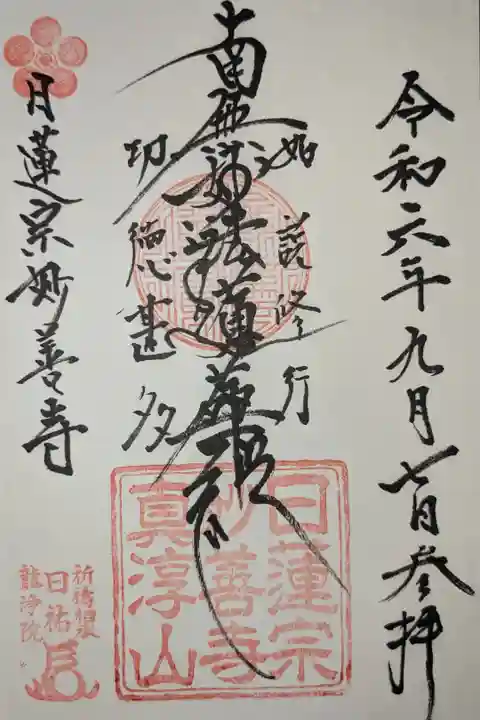 令和六年九月七日参拝
如説修行
南無妙法蓮華経
功徳甚多
日蓮宗妙善寺
日蓮宗
妙善寺
真淳山
日祐
龍浄院